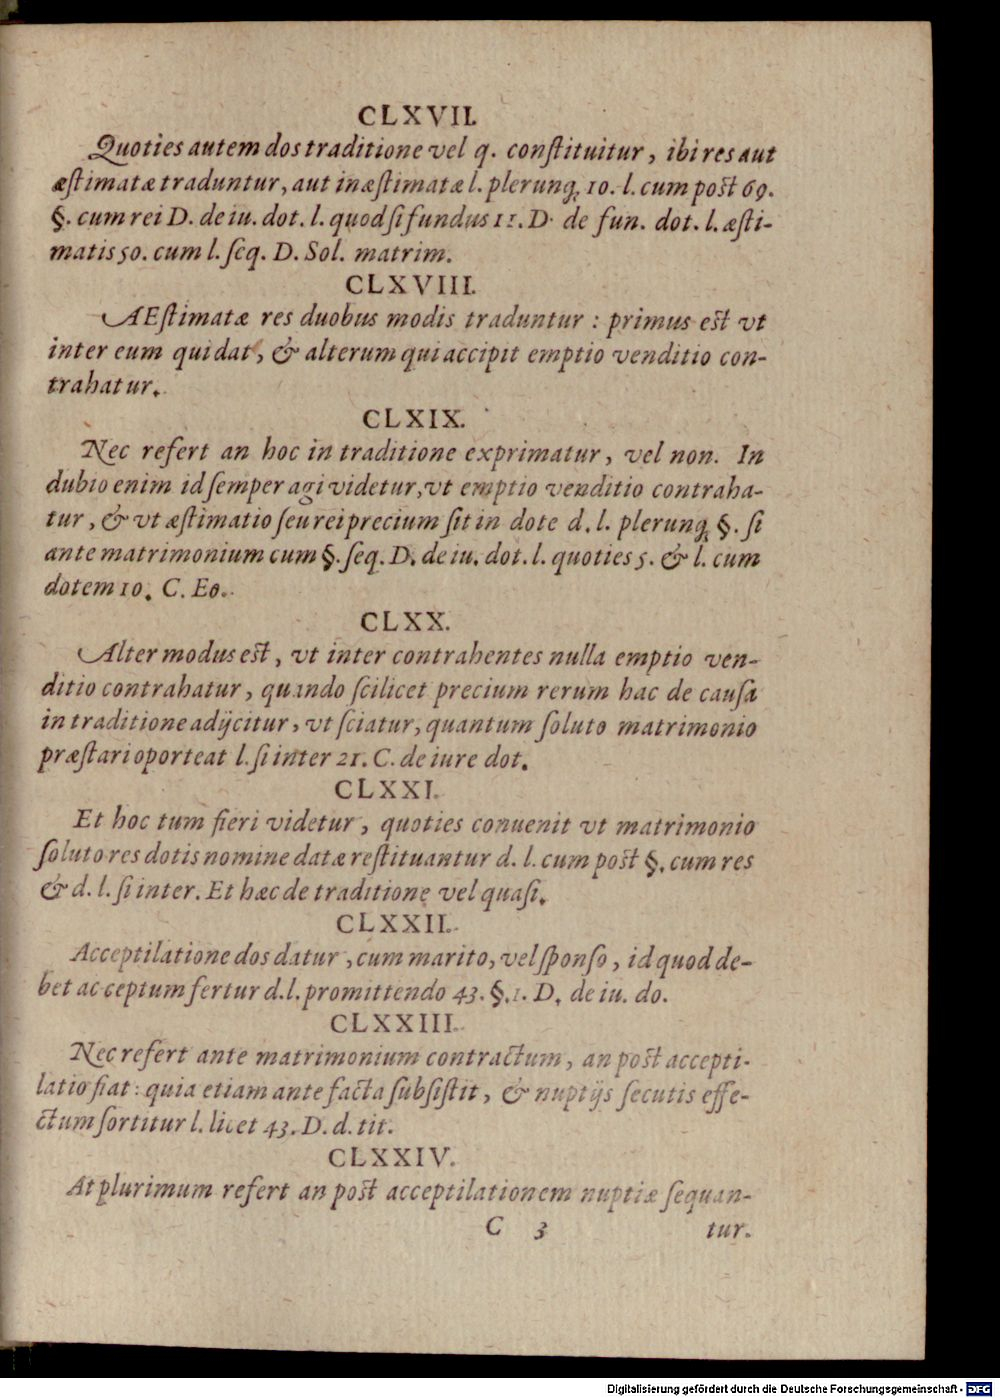 CLXVII.
Quoties autem dos traditione vel q. constituitur, ibi res aut
æstimatæ traduntur, aut inæstimatæ l. plerunq; 10. l. cum post 69.
§. cum rei D. de iu. dot. l. quod si fundus 11. D. de fun. dot. l. æsti-
matis 50. cum l. seq. D. Sol. matrim.
CLXVIII.
AEstimatæ res duobus modis traduntur : primus est vt
inter eum qui dat, & alterum qui accipit emptio venditio con-
trahatur.
CLXIX.
Nec refert an hoc in traditione exprimatur, vel non. In
dubio enim id semper agi videtur, vt emptio venditio contraha-
tur, & vt æstimatio seu rei precium sit in dote d. l. plerunq; §. si
ante matrimonium cum §. seq. D. de iu. dot. l. quoties 5. & l. cum
dotem 10. C. Eo.
CLXX.
Alter modus est, vt inter contrahentes nulla emptio ven-
ditio contrahatur, quando scilicet precium rerum hac de causa
in traditione adijcitur, vt sciatur, quantum soluto matrimonio
præstari oporteat l. si inter 21. C. de iure dot.
CLXXI.
Et hoc tum fieri videtur, quoties conuenit vt matrimonio
soluto res dotis nomine datæ restituantur d. l. cum post §. cum res
& d. l. si inter. Et hæc de traditione vel quasi.
CLXXII.
Acceptilatione dos datur, cum marito, vel sponso, id quod de-
bet acceptum fertur d. l. promittendo 43. §. 1. D. de iu. do.
CLXXIII.
Nec refert ante matrimonium contractum, an post accepti-
latio fiat : quia etiam ante facta subsistit, & nuptijs secutis effe-
ctum sortitur l. licet 43. D. d. tit.
CLXXIV.
At plurimum refert an post acceptilationem nuptiæ sequan-
C 3 tur.
Digitalisierung gefördert durch die Deutsche Forschungsgemeinschaft - DFG